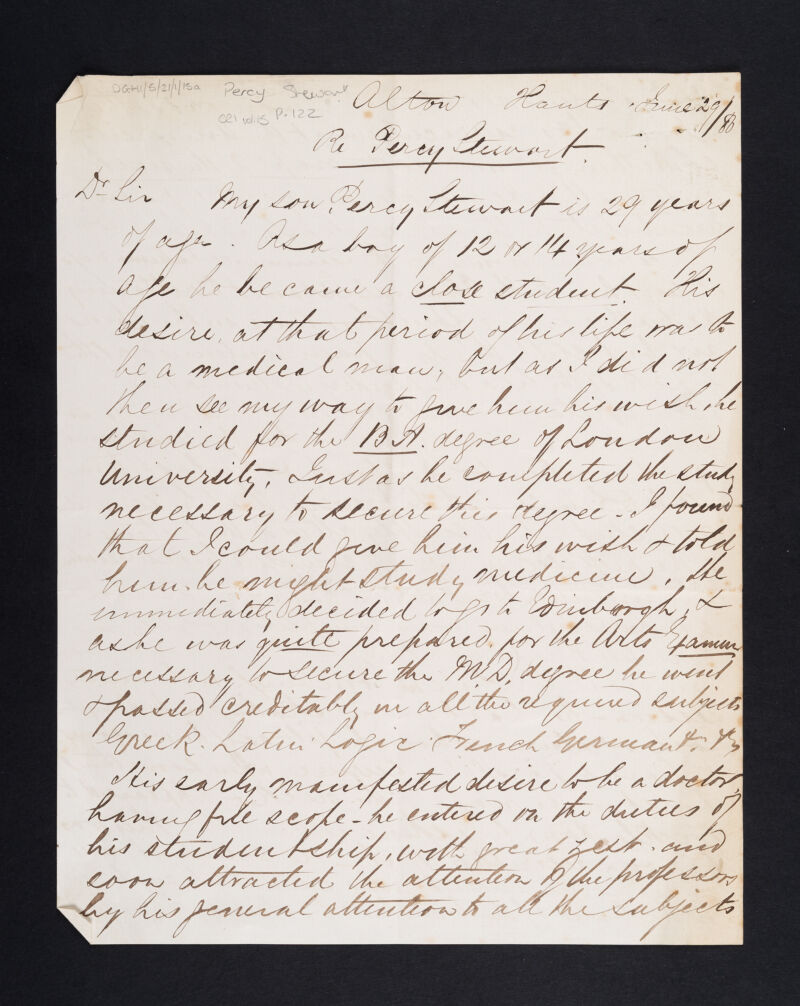 DGH1/5/21/1/15a Percy Stewart
P. 122
Alton Hants June 29/88
Re Percy Stewart.
Dr Sir My son Percy Stewart is 29 years
of age. As a boy of 12 or 14 years of
age he became a close student. His
desire, at that period of his life was to
be a medical man, but as I did not
then see my way to give him his wish, he
studied for the BA. degree of London
University. Just as he completed the study
necessary to secure this degree - I found
that I could give him his wish & told
him he might study medicine. He
immediately decided to go to Edinburgh, &
as he was quite prepared, for the Arts Examn
necessary to secure the MD, degree he went
& passed creditably in all the required subjects
Greek. Latin Logic French German &c &c
His early manifested desire to be a doctor,
having free scope - he entered on the duties of
his studentship, with great zest. and
soon attracted the attention of the professors
by his general attention to all the subjects